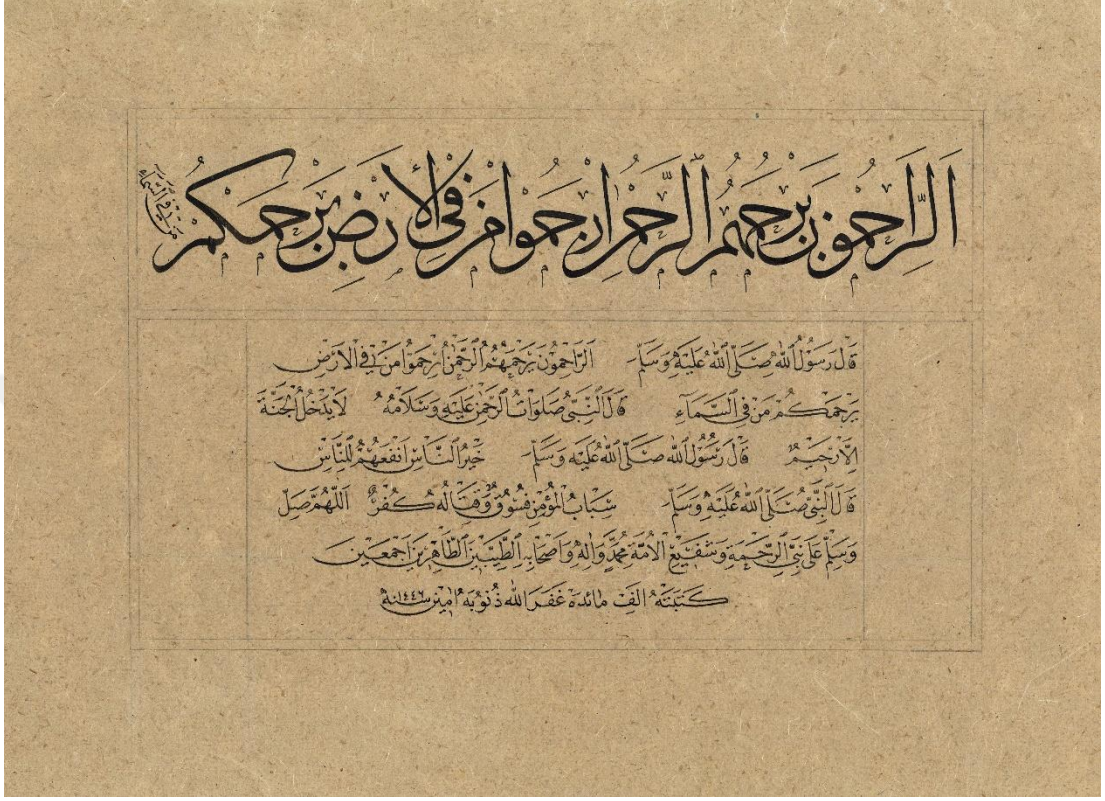 اَلرَّاحِمُونَ يَرْحَمُهُمُ الرَّحْمٰنُ اِرْحَمُوا مَنْ فِي الْأَرْضِ يَرْحَمْكُمْ
مَنْ فِي السَّمَاءِ
قَالَ رَسُولُ اللهِ صَلَّى اللهُ عَلَيْهِ وَسَلَّمَ اَلرَّاحِمُونَ يَرْحَمُهُمُ الرَّحْمٰنُ اِرْحَمُوا مَنْ فِي الْاَرْضِ
يَرْحَمْكُمْ مَنْ فِي السَّمَآءِ قَالَ النَّبِيُّ صَلَوَاتُ الرَّحْمٰنِ عَلَيْهِ وَسَلَامُهُ لَا يَدْخُلُ الْجَنَّةَ
اِلَّا رَحِيمٌ قَالَ رَسُولُ اللهِ صَلَّى اللهُ عَلَيْهِ وَسَلَّمَ خَيْرُ النَّاسِ اَنْفَعُهُمْ لِلنَّاسِ
قَالَ النَّبِيُّ صَلَّى اللهُ عَلَيْهِ وَسَلَّمَ سِبَابُ الْمُؤْمِنِ فُسُوقٌ وَقِتَالُهُ كُفْرٌ اَللّٰهُمَّ صَلِّ
وَسَلِّمْ عَلَى نَبِيِّ الرَّحْمَةِ وَشَفِيعِ الْاُمَّةِ مُحَمَّدٍ وَاٰلِهِ وَاَصْحَابِهِ الطَّيِّبِينَ الطَّاهِرِينَ اَجْمَعِينَ
كَتَبَتْهُ الف مائده غَفَرَ اللهُ ذُنُوبَهَا اٰمِين سنة ١٤٤٦